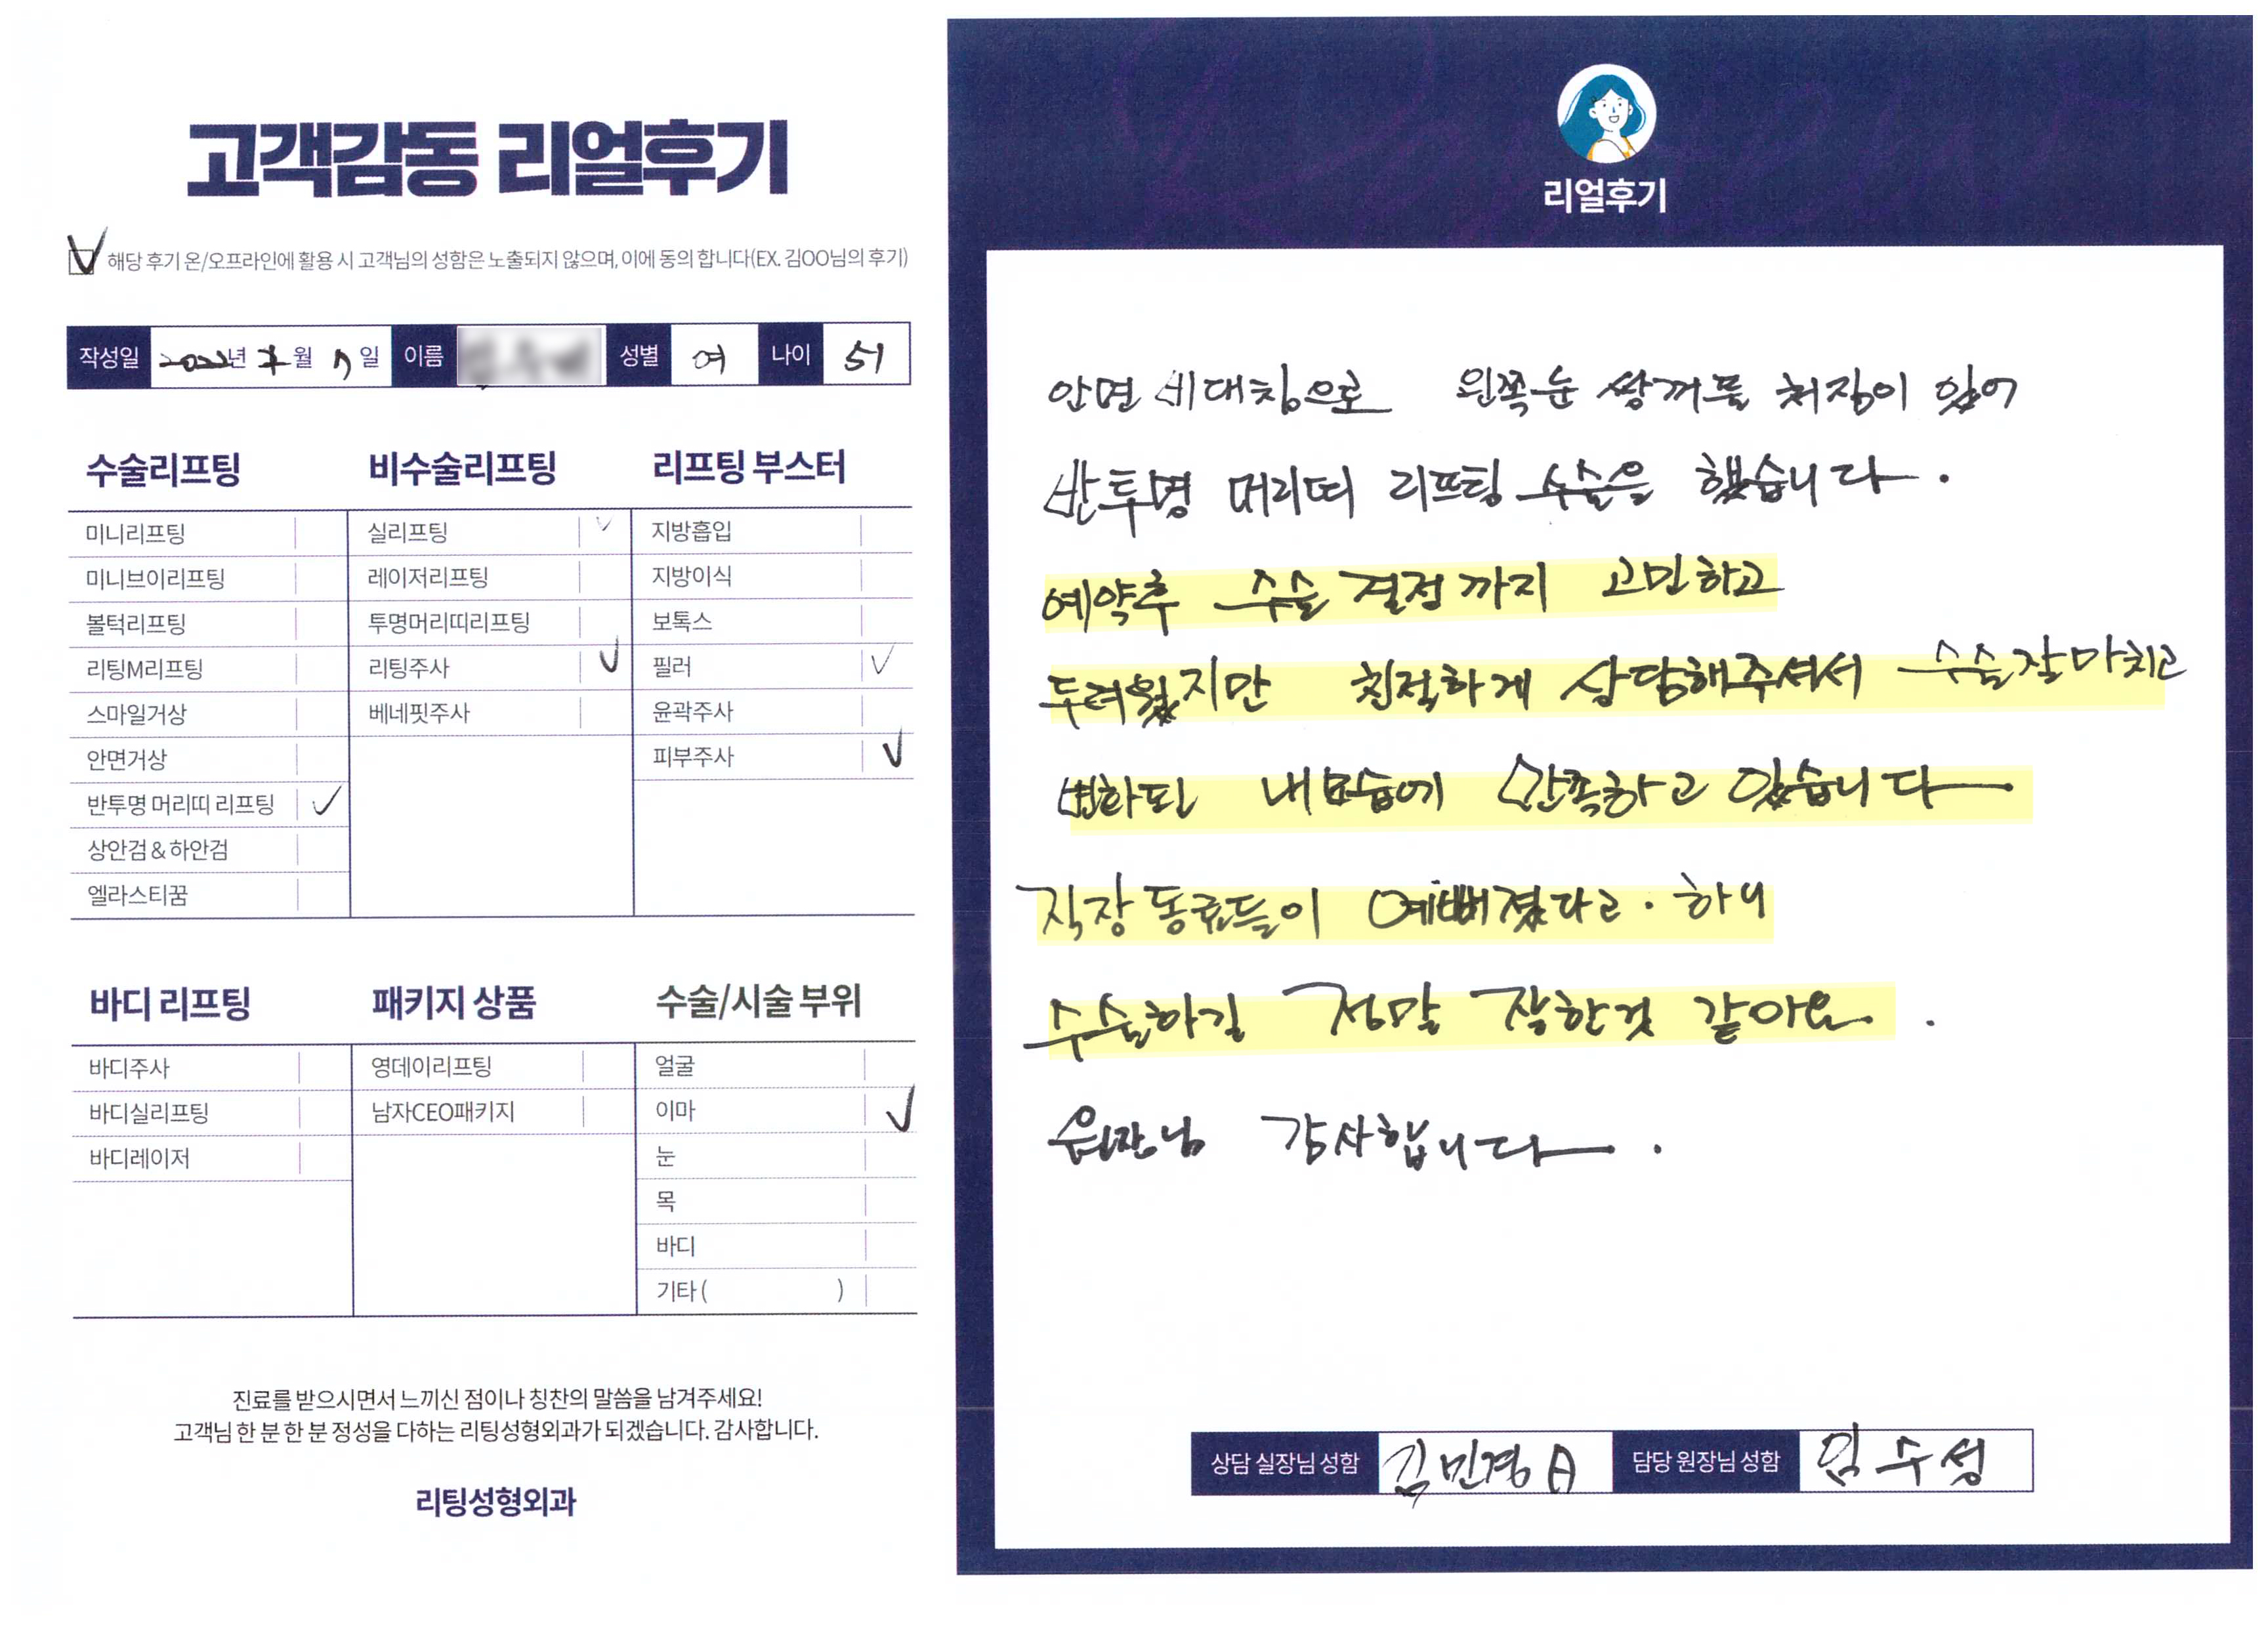 고객감동 리얼후기
해당 후기 온/오프라인에 활용 시 고객님의 성함은 노출되지 않으며, 이에 동의 합니다(EX. 김OO님의 후기)
작성일 2022년 7월 일 이름 성별 여 나이 51
수술리프팅
미니리프팅
미니브이리프팅
볼턱리프팅
리팅M리프팅
스마일거상
안면거상
반투명 머리띠 리프팅
상안검&하안검
엘라스티꿈
비수술리프팅
실리프팅
레이저리프팅
투명머리띠리프팅
리팅주사
베네핏주사
리프팅 부스터
지방흡입
지방이식
보톡스
필러
윤곽주사
피부주사
바디 리프팅
바디주사
바디실리프팅
바디레이저
패키지 상품
영데이리프팅
남자CEO패키지
수술/시술 부위
얼굴
이마
눈
목
바디
기타 ( )
진료를 받으시면서 느끼신 점이나 칭찬의 말씀을 남겨주세요!
고객님 한 분 한 분 정성을 다하는 리팅성형외과가 되겠습니다. 감사합니다.
리팅성형외과
리얼후기
안면 비대칭으로 왼쪽눈 쌍꺼풀 처짐이 있어
반투명 머리띠 리프팅 수술을 했습니다.
예약후 수술 결정까지 고민하고
두려웠지만 친절하게 상담해주셔서 수술잘마치고
변화된 내모습에 만족하고 있습니다
직장 동료들이 예뻐졌다고. 하니
수술하길 정말 잘한것 같아요.
원장님 감사합니다.
상담 실장님 성함 김민경A 담당 원장님 성함 임수성